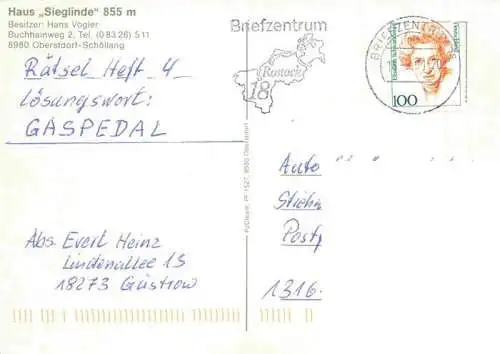 Haus „Sieglinde“ 855 m
Besitzer: Hans Vogler
Buchhainweg 2, Tel. (0 83 26) 5 11
8980 Oberstdorf-Schöllang
Rätsel Heft 4
Lösungswort:
GASPEDAL
Abs. Evert Heinz
Lindenallee 15
18273 Güstrow
Briefzentrum
Rostock
18
BRIEFZENTRUM
100
Auto
Postf
1316